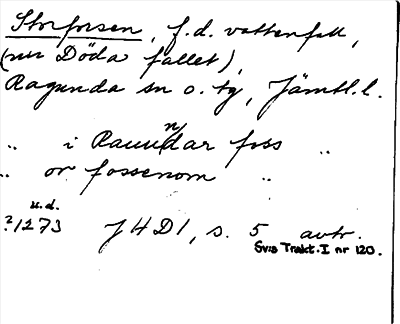 Storforsen, f.d. vattenfall,
(nu Döda fallet),
Ragunda sn o. tg, Jämtl.l.
„ i Raundar foss „
n
„ or fossenom „
u.d.
?1273 JHD1, s. 5 avtr.
Svis Trakt. I nr 120.